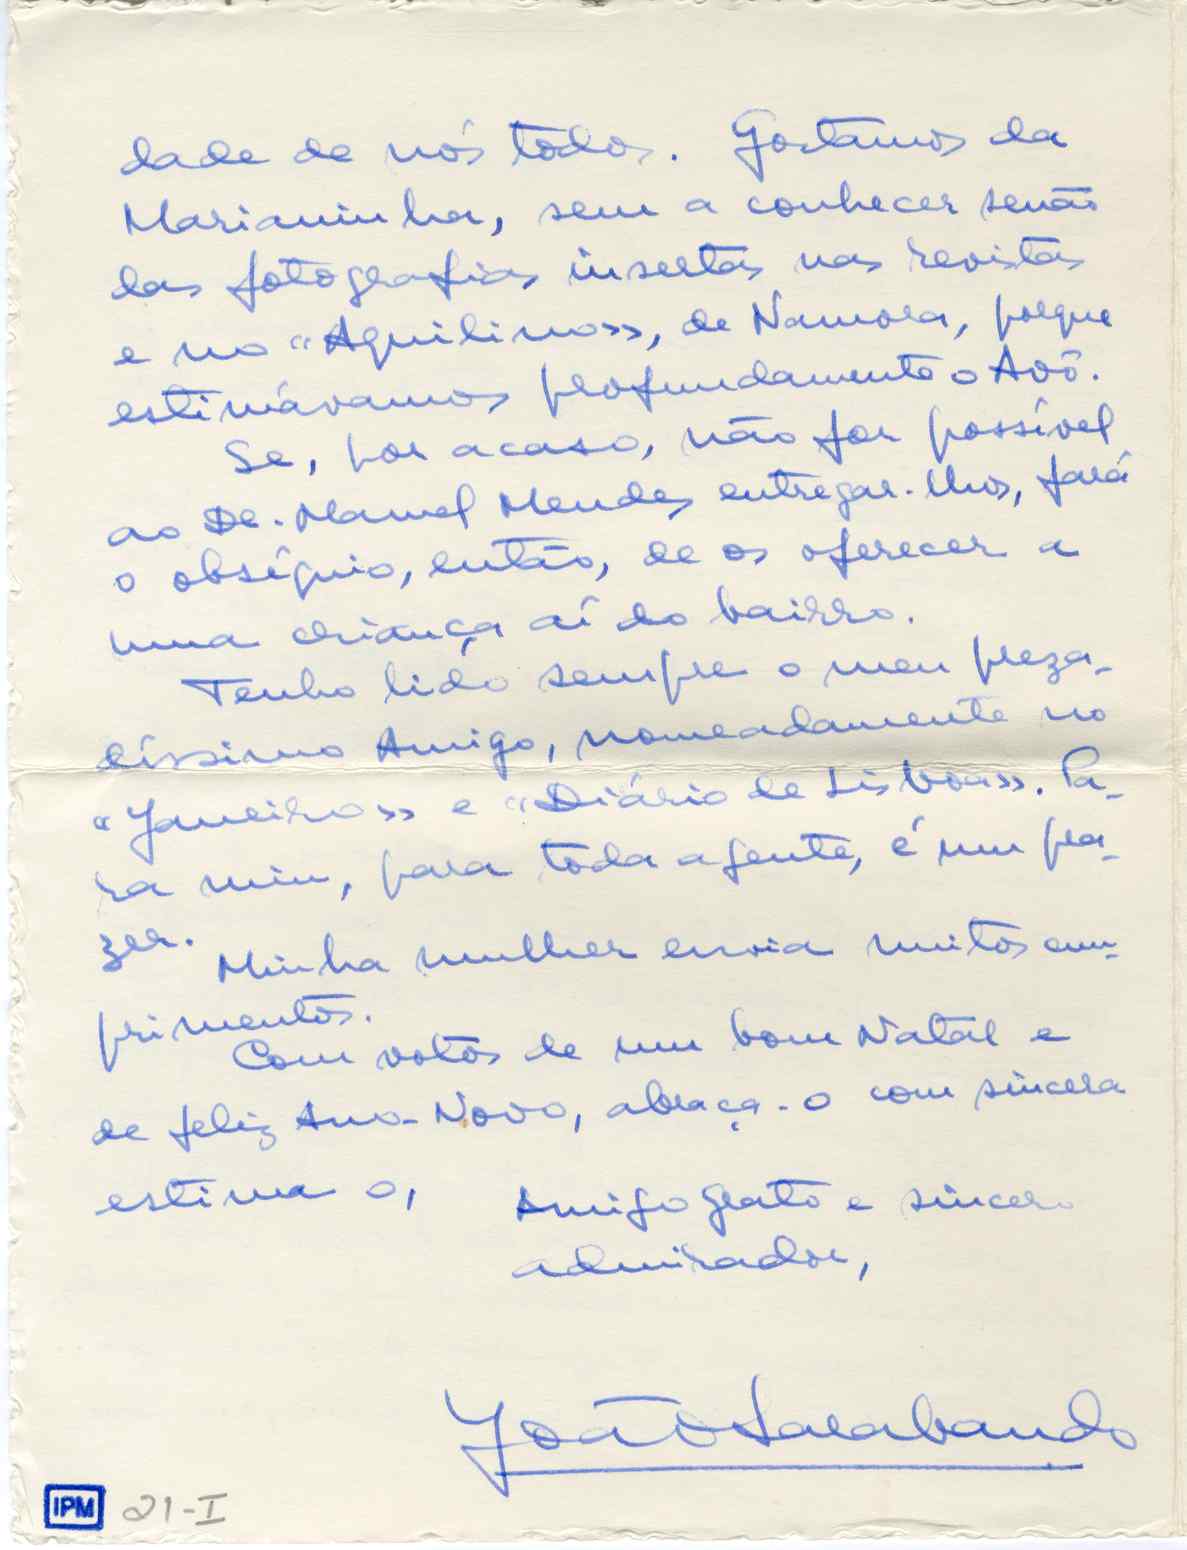 dade de nós todos. Gostamos da
Marianinha, sem a conhecer senão
das fotografias insertas nas revistas
e no «Aquilino», de Namora, porque
estimávamos profundamente o Avô.
Se, por acaso, não for possível
ao Dr. Manuel Mendes entregar-lhos, fará
o obséquio, então, de os oferecer a
uma criança aí do bairro.
Tenho lido sempre o meu preza-
díssimo Amigo, nomeadamente no
«Janeiro» e «Diário de Lisboa». Pa-
ra mim, para toda a gente, é um pra-
zer.
Minha mulher envia muitos cum-
primentos.
Com votos de um bom Natal e
de feliz Ano-Novo, abraça-o com sincera
estima o,
Amigo grato e sincero
admirador,
João Sarabando
IPM 21-I